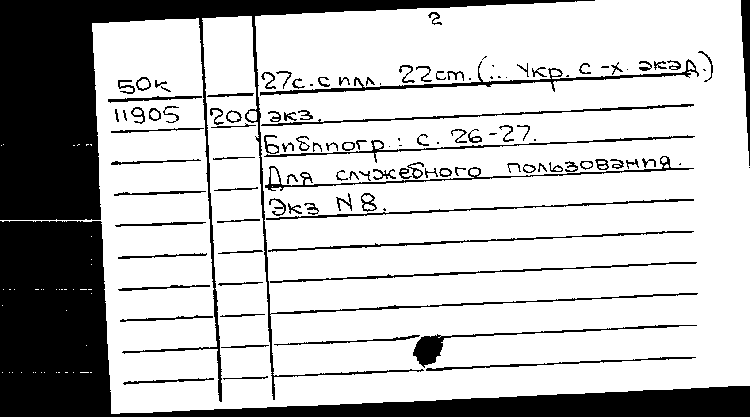 2
50к 27с. с илл. 22ст. (:.. Укр. с-х. акад.)
11905 200 экз.
Библиогр.: с. 26-27.
Для служебного пользования.
Экз N 8.